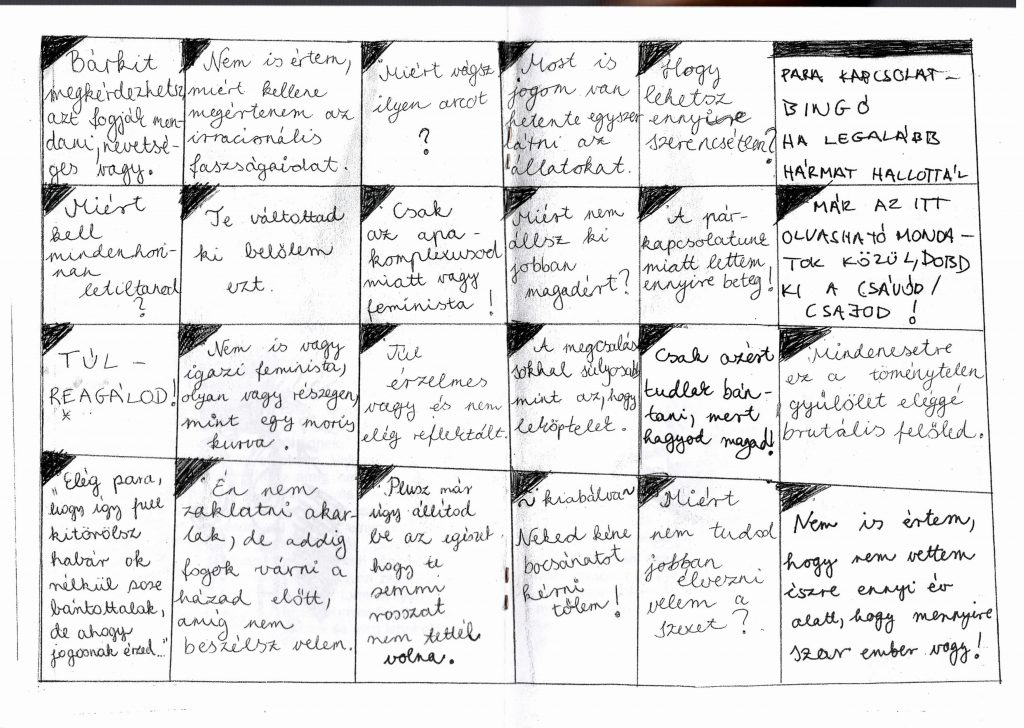 Bárkit
megkérdezhetsz
azt fogják mon-
dani, nevetsé-
ges vagy.
Nem is értem,
miért kellene
megértenem az
irracionális
faszságaidat.
Miért vágsz
ilyen arcot
?
Most is
jogom van
hetente egyszer
látni az
állatokat.
Hogy
lehetsz
ennyire
szerencsétlen?
PARA KAPCSOLAT-
BINGÓ
HA LEGALÁBB
HÁRMAT HALLOTTÁL
MÁR AZ ITT
OLVASHATÓ MONDA-
TOK KÖZÜL, DOBD
KI A CSÁVÓD/
CSAJOD!
Miért
kell
mindenhon-
nan
letiltanod
?
Te váltottad
ki belőlem
ezt.
Csak
az apa-
komplexusod
miatt vagy
feminista!
Miért nem
állsz ki
jobban
magadért?
A pár-
kapcsolatunk
miatt lettem
ennyire beteg!
TÚL-
REAGÁLOD!
Nem is vagy
igazi feminista,
olyan vagy részegen,
mint egy
kurva.
Túl
érzelmes
vagy és nem
elég reflektált.
A megcsalás
sokkal súlyosabb
mint az, hogy
leköptelek.
Csak azért
tudlak bán-
tani, mert
hagyod magad!
Mindenesetre
ez a töménytelen
gyűlölet eléggé
brutális felőled.
"Elég para,
hogy így full
kitörölsz
habár ok
nélkül sose
bántottalak,
de ahogy
jogosnak érzed..."
Én nem
zaklatni akar-
lak, de addig
fogok várni a
házad előtt,
amíg nem
beszélsz velem.
Plusz már
úgy állítod
be az egészet
hogy te
semmi
rosszat
nem tettél
volna.
~ kiabálva ~
Neked kéne
bocsánatot
kérni
tőlem!
Miért
nem tudod
jobban
élvezni
velem a
szexet?
Nem is értem,
hogy nem vettem
észre ennyi év
alatt, hogy mennyire
szar ember vagy!